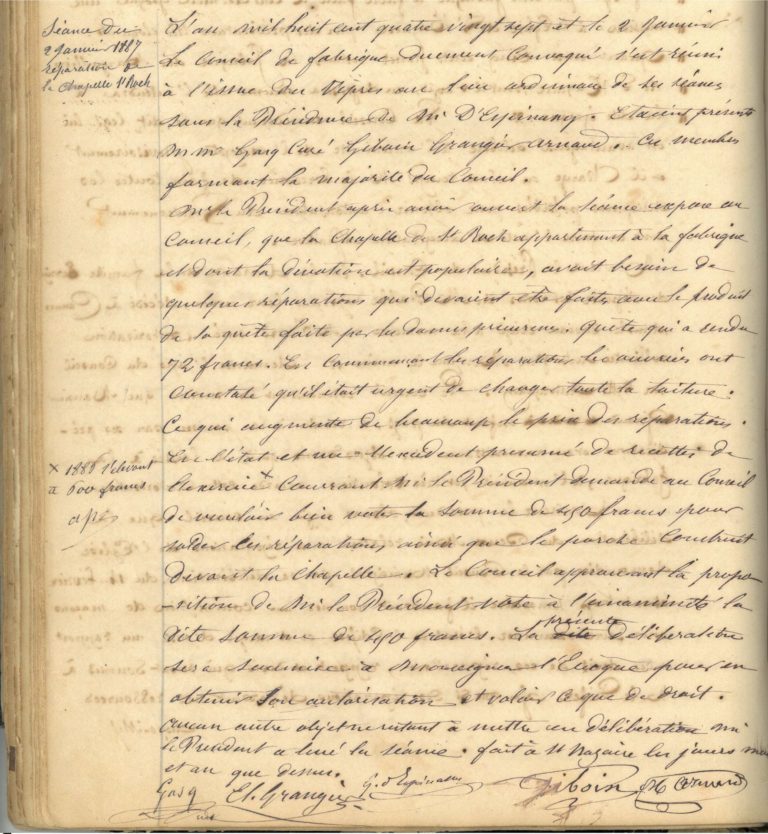 Séance du
2 Janvier 1887
réparation de
la Chapelle St Roch
L'an mil huit cent quatre vingt sept et le 2 Janvier
Le Conseil de fabrique dument Convoqué s'est réuni
à l'issue des Vêpres au lieu ordinaire de ses séances
sous la Présidence de Mr D'Espinassy. Etaient présents
M M Gasq Curé Giboin Grangier Arnaud. Ces membres
formant la majorité du Conseil.
Mr le Président après avoir ouvert la séance expose au
Conseil, que la Chapelle de St Roch appartenant à la fabrique
et dont la dévotion est populaire, avait besoin de
quelques réparations qui devaient être faites avec le produit
de la quête faite par les dames prieures. quête qui a rendu
72 francs. En Commençant les réparations les ouvriers ont
Constaté qu'il était urgent de changer toute la toiture.
Ce qui augmente de beaucoup le prix des réparations.
En l'état et un excédent présumé de recettes de
l'exercice x Courrant Mr le Président demande au Conseil
x 188 s'élevant
à 600 francs
de vouloir bien voter la somme de 450 francs pour
solder les réparations ainsi que le porche Construit
devant la Chapelle. Le Conseil approuvant la propo
-sition de Mr le Président vote à l'unanimité la
dite somme de 450 francs. La dite présente délibération
sera soumise à Monseigneur l'Evêque pour en
obtenir son autorisation et valoir ce que de droit.
Aucun autre objet ne restant à mettre en délibération Mr
le Président a levé la séance. fait à St Nazaire les jours mois
et an que dessus.
Gasq Et. Grangier G. d'Espinassy Giboin Arnaud